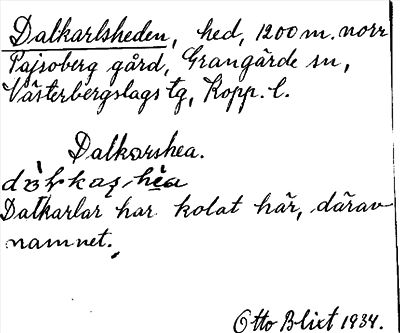 Dalkarlsheden, hed, 1200 m. norr
Pajsoberg gård, Grangärde sn,
Västerbergslags tg, Kopp. l.
Dalkarshea.
Dalkarlar har kolat här, därav
namnet.
Otto Blixt 1934.